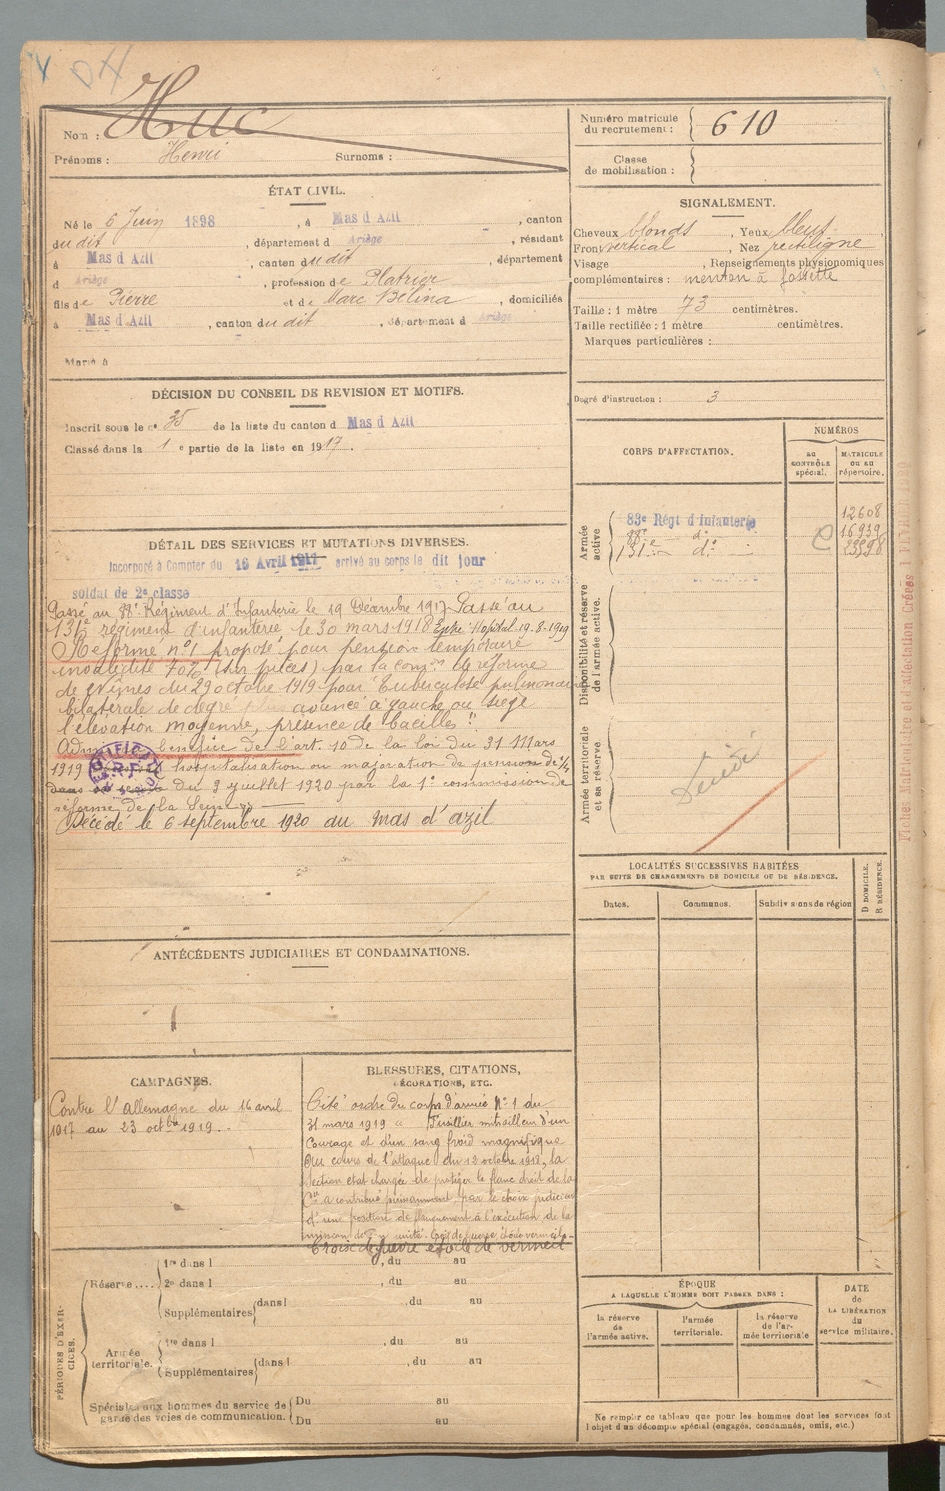 DH
Nom : Huc
Prénoms : Henri Surnoms :
Numéro matricule du recrutement : 610
Classe de mobilisation :
ÉTAT CIVIL.
Né le 6 Juin 1898, à Mas d Azil, canton
du dit, département d Ariège, résident
à Mas d Azil, canton du dit, département
d Ariège, profession de Platrier
fils de Pierre et de Marc Bélina, domiciliés
à Mas d Azil, canton du dit, département d Ariège
Marié à
SIGNALEMENT.
Cheveux blonds, Yeux bleus,
Front vertical, Nez rectiligne
Visage , Renseignements physionomiques
complémentaires : menton à fossette
Taille : 1 mètre 73 centimètres.
Taille rectifiée : 1 mètre centimètres.
Marques particulières :
DÉCISION DU CONSEIL DE REVISION ET MOTIFS.
Inscrit sous le n° 35 de la liste du canton d Mas d Azil
Classé dans la 1 e partie de la liste en 1917.
Degré d'instruction : 3
CORPS D'AFFECTATION.
NUMÉROS
au CONTRÔLE spécial.
MATRICULE ou au répertoire.
Armée active
83e Régt d'infanterie 12608
88e do 16939
131e do
Disponibilité et réserve de l'armée active.
Armée territoriale et sa réserve
Décédé
DÉTAIL DES SERVICES ET MUTATIONS DIVERSES.
Incorporé à Compter du 16 Avril 1917 arrivé au corps le dit jour
soldat de 2e classe
Passé au 88e Régiment d'Infanterie le 19 Décembre 1917 Passé au
131e régiment d'infanterie le 30 mars 1918 Entré Hopital 19-8-1919
Réforme n°1 proposé pour pension temporaire
invalidité 70% (sur pièces) par la comon de réforme
de Nîmes du 29 octobre 1919 pour "Tuberculose pulmonaire
bilatérale de degré plus avancé à gauche ou siège
l'élévation moyenne, présence de bacilles"
Adm bénéfice de l'art. 10 de la loi du 31 Mars
1919 hospitalisation ou majoration de pension de 1/4
du 9 juillet 1920 par la 1e commission de
réforme de la Seine
Décédé le 6 septembre 1920 au Mas d'azil
RECTIFICATION R.F.
LOCALITÉS SUCCESSIVES HABITÉES
PAR SUITE DE CHANGEMENTS DE DOMICILE OU DE RÉSIDENCE.
Dates. Communes. Subdivisions de région
D. DOMICILE. R. RÉSIDENCE.
ANTÉCÉDENTS JUDICIAIRES ET CONDAMNATIONS.
CAMPAGNES.
Contre l'allemagne du 16 avril
1917 au 23 octbre 1919.
BLESSURES, CITATIONS,
DÉCORATIONS, ETC.
Cité ordre du corps d'armée N° 1 du
31 mars 1919 " Fusillier mitrailleur d'un
courage et d'un sang froid magnifique
Au cours de l'attaque du 12 octobre 1918, la
section etait chargée de protéger le flanc droit de la
Cie a contribué puissamment par le choix judicieux
d'une position de flanquement à l'exécution de la
mission de
Croix de guerre étoile de vermeil
PÉRIODES D'EXERCICES.
Réserve
1re dans l , du au
2e dans l , du au
Supplémentaires dans l , du au
Armée territoriale.
1re dans l , du au
Supplémentaires dans l , du au
Spéciales aux hommes du service de garde des voies de communication. Du au
Du au
ÉPOQUE
A LAQUELLE L'HOMME DOIT PASSER DANS :
la réserve de l'armée active.
l'armée territoriale.
la réserve de l'armée territoriale
DATE de LA LIBÉRATION du service militaire.
Ne remplir ce tableau que pour les hommes dont les services font
l'objet d'un décompte spécial (engagés, condamnés, omis, etc.)